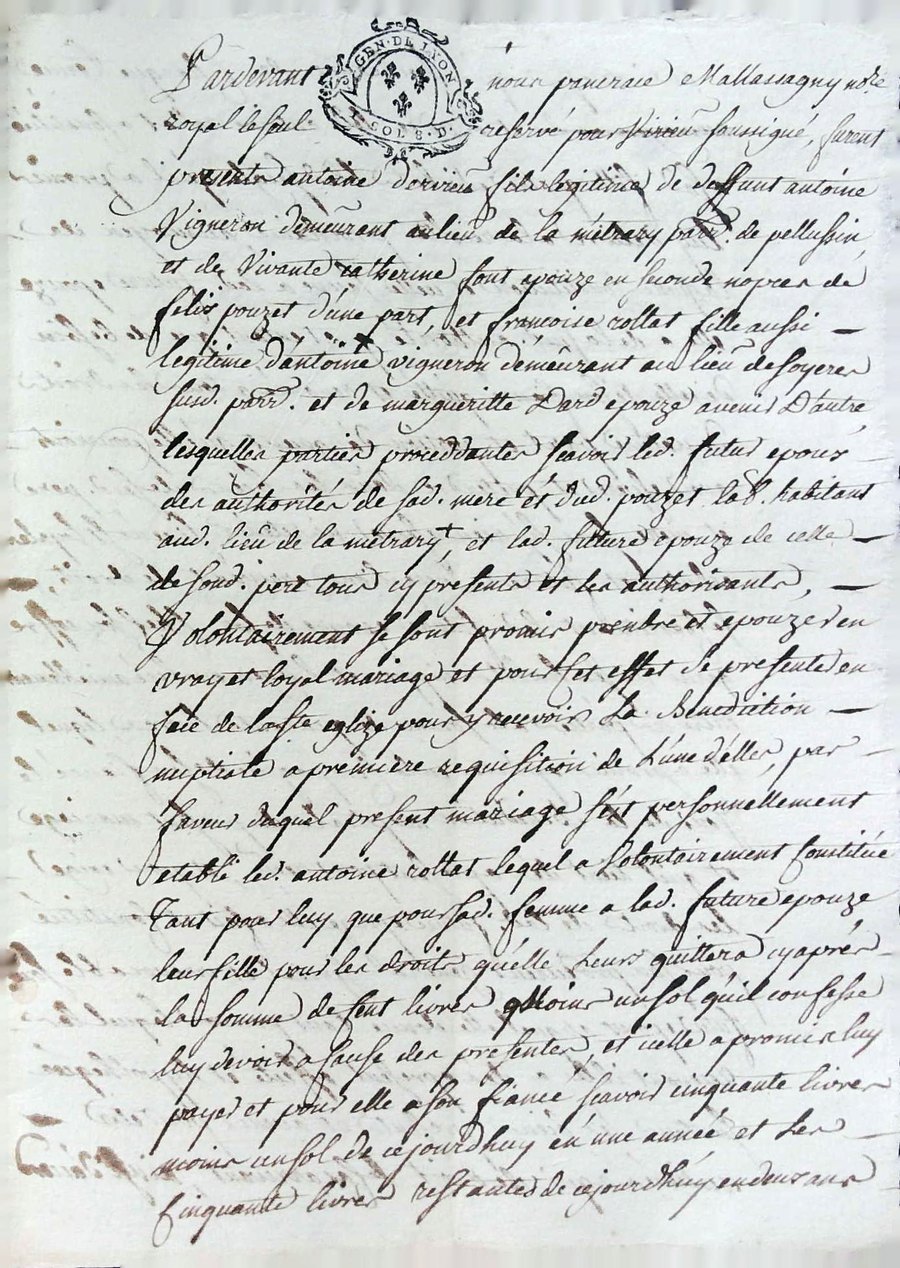 GEN. DE LYON
SOLS. D.
Pardevant nous pancrace Mallassagny no.re
royal le seul reservé pour Virieu soussigné, furent
presents antoine dervieu fils legitime de deffunt antoine
Vigneron demeurant au lieu de la métrary parr. de pellussin
et de Vivante catherine font epouze en seconde nopces de
felix pouzet d'une part, et francoise rollat fille aussi —
legitime d'antoine vigneron demeurant au lieu de soyeres
susd. parr. et de margueritte Dard epouze avenir D'autre
lesquelles parties proceddantes scavoir led. futur epoux
des authorités de sad. mere et dud. pouzet habitant
aud. lieu de la métrary +, et lad. future epouze de celle —
de sond. pere tous cy presents et les authorisants, —
Volontairement se sont promis prendre et epouzer en
vray et loyal mariage et pour cet effet se presenter en
face de la ste eglize pour y recevoir La Benediction —
nuptiale a premiere requisition de L'une d'elles, par —
faveur duquel present mariage s'est personnellement
etabli led. antoine rollat lequel a Volontairement Constitué
Tant pour luy que pour sad. femme a lad. future epouze
leur fille pour les droits qu'elle Leurs quittera cy aprés
la somme de Cent livres moins un sol qu'il confesse
luy devoir a Cause des presentes, et icelle a promis luy
payer et pour elle a son fiancé scavoir cinquante livres
moins un sol de ce jourdhuy en une année et Les —
Cinquante livres restantes de ce jourdhuy en deux ans